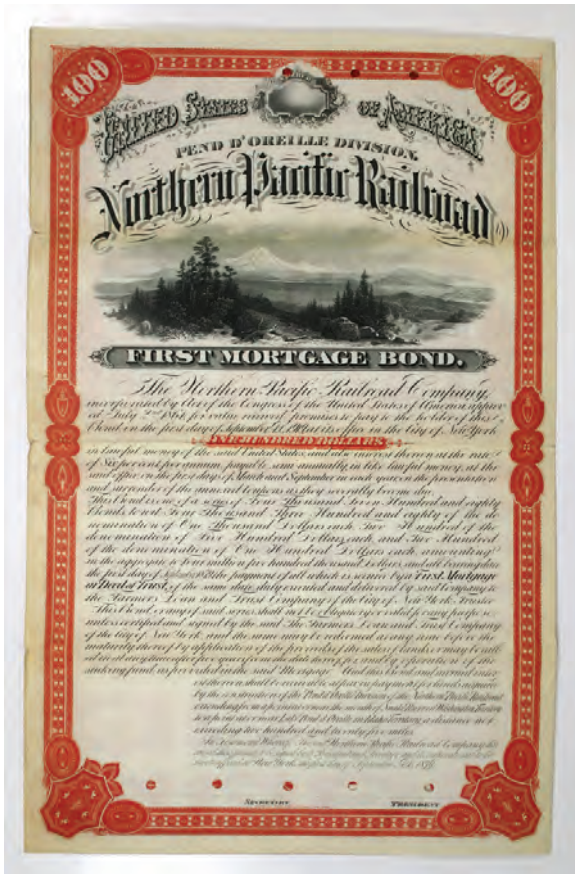 100 100
UNITED STATES OF AMERICA.
PEND D'OREILLE DIVISION.
Northern Pacific Railroad
FIRST MORTGAGE BOND.
The Northern Pacific Railroad Company,
incorporated by Act of the Congress of the United States of America approv
ed July 2nd 1864, for value received promises to pay to the holder of this
Bond on the first day of September at its office in the City of New York
ONE HUNDRED DOLLARS
in lawful money of the said United States, and also interest thereon at the rate
of Six per cent per annum, payable semi annually, in like lawful money, at the
said office, on the first days of March and September in each year, on the presentation
and surrender of the annexed coupons as they severally become due.
This bond is one of a series of Four Thousand Seven Hundred and eighty
Bonds to wit Four Thousand Three Hundred and eighty of the de
nomination of One Thousand Dollars each, Two Hundred of the
denomination of Five Hundred Dollars each, and Two Hundred
of the denomination of One Hundred Dollars each, amounting
in the aggregate to four million five hundred thousand dollars, and all bearing date
the first day of September the payment of all which is secured by a First Mortgage
or Deed of Trust, of the same date, duly executed and delivered by said Company to
the Farmers Loan and Trust Company of the City of New York, Trustee.
This Bond or any of said series shall not be obligatory or valid for any purpose
unless certified and signed by the said The Farmers Loan and Trust Company
of the City of New York, and the same may be redeemed at any time before the
maturity thereof by application of the proceeds of the sales of lands
sinking fund, as provided in the said Mortgage. And this bond and accrued inter
est thereon shall be receivable at par in payment for lands acquired
by the construction of the Pend d'Oreille Division of the Northern Pacific Railroad
extending from a point at or near the mouth of Snake River in Washington Territory
to a point at or near Lake Pend d'Oreille in Idaho Territory, a distance not
exceeding two hundred and twenty five miles.
In Testimony Whereof the said Northern Pacific Railroad Company
SECRETARY PRESIDENT